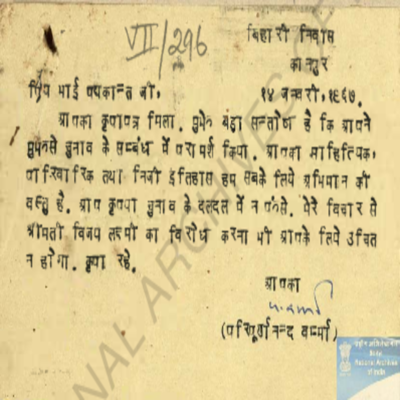 VII/296
बिहारी निवास
कानपुर
१४ जनवरी, १९६७.
प्रिय भाई पद्मकान्त जी,
आपका कृपापत्र मिला. मुझे बड़ा सन्तोष है कि आपने
मुझसे चुनाव के सम्बंध में परामर्श किया. आपका साहित्यिक,
पारिवारिक तथा निजी इतिहास हम सबके लिये अभिमान की
वस्तु है. आप कृपया चुनाव के दलदल में न फंसे. मेरे विचार से
श्रीमती विजय लक्ष्मी का विरोध करना भी आपके लिये उचित
न होगा. कृपा रहे.
आपका
(परिपूर्णानन्द वर्मा)
NAL ARCHIVES
राष्ट्रीय अभिलेखागार
National Archives
of India